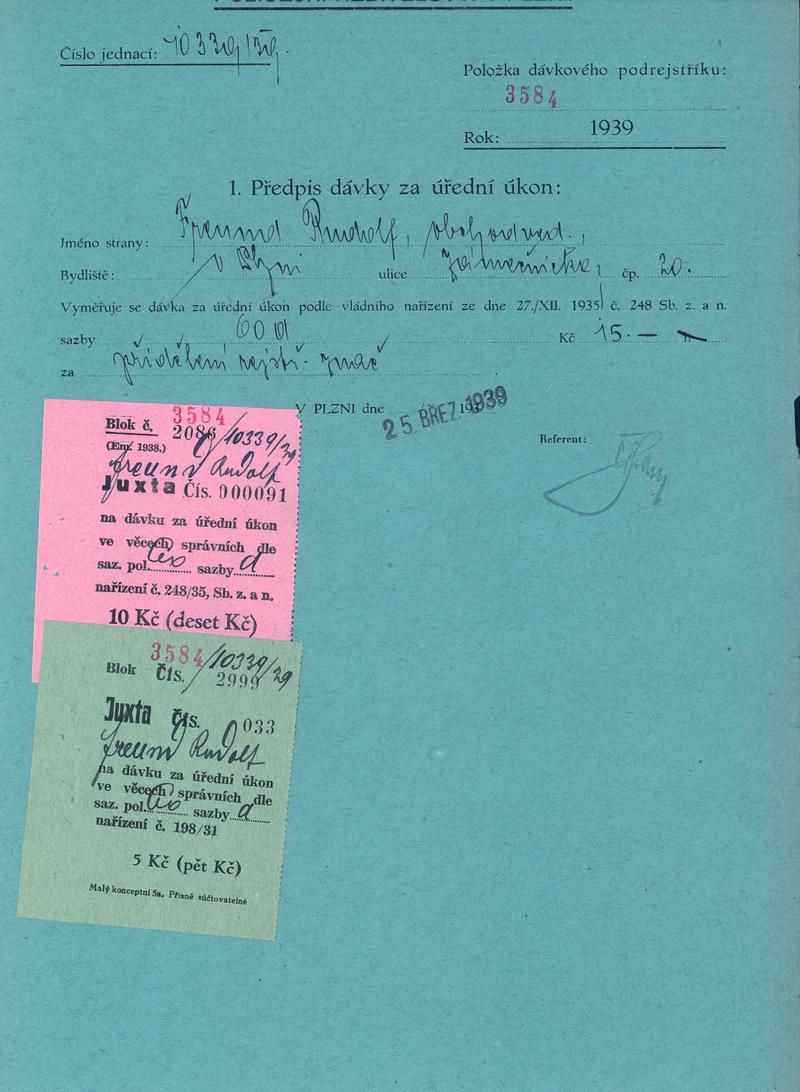 POLICEJNÍ ŘEDITELSTVÍ V PLZNI
Číslo jednací: 10339/39.
Položka dávkového podrejstříku:
3584
Rok: 1939
1. Předpis dávky za úřední úkon:
Jméno strany: Freund Rudolf, obchodved.,
Bydliště: v Plzni ulice čp. 20.
Vyměřuje se dávka za úřední úkon podle vládního nařízení ze dne 27./XII. 1935 č. 248 Sb. z. a n.
sazby 60 d Kč 15.—
za přidělení rejstř. znač
V PLZNI dne 25. BŘEZ. 1939 193
Referent:
3584
Blok č. 2086 /10339/39
(Em. 1938.)
Freund Rudolf
Juxta Čís. 000091
na dávku za úřední úkon
ve věcech správních dle
saz. pol. 60 sazby d
nařízení č. 248/35, Sb. z. a n.
10 Kč (deset Kč)
3584/10339/39
Blok Čís. 2999
Juxta Čís. 033
Freund Rudolf
na dávku za úřední úkon
ve věcech správních dle
saz. pol. 60 sazby d
nařízení č. 198/31
5 Kč (pět Kč)
Malý konceptní 5a. Přísně súčtovatelné